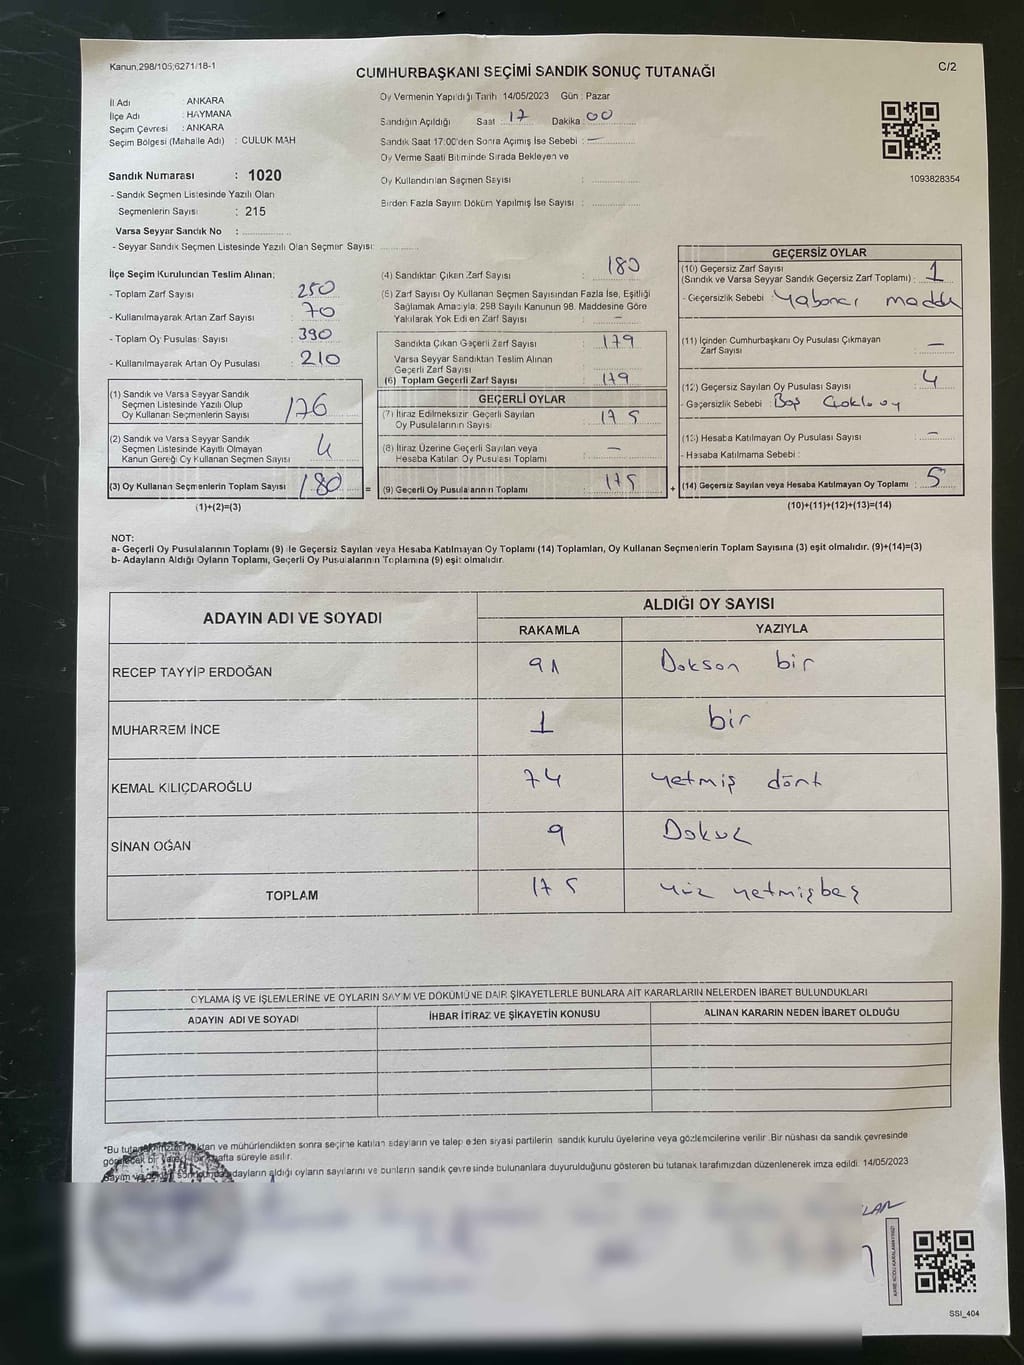 Kanun,298/105;6271/18-1
CUMHURBAŞKANI SEÇİMİ SANDIK SONUÇ TUTANAĞI
C/2
İl Adı : ANKARA
İlçe Adı : HAYMANA
Seçim Çevresi : ANKARA
Seçim Bölgesi (Mahalle Adı) : CULUK MAH
Oy Vermenin Yapıldığı Tarih : 14/05/2023 Gün : Pazar
Sandığın Açıldığı Saat : 17 Dakika : 00
Sandık Saat 17:00'den Sonra Açımış İse Sebebi : —
Oy Verme Saati Bitiminde Sırada Bekleyen ve
Oy Kullandırılan Seçmen Sayısı :
Birden Fazla Sayım Döküm Yapılmış İse Sayısı :
1093828354
Sandık Numarası : 1020
- Sandık Seçmen Listesinde Yazılı Olan
Seçmenlerin Sayısı : 215
Varsa Seyyar Sandık No :
- Seyyar Sandık Seçmen Listesinde Yazılı Olan Seçmen Sayısı:
İlçe Seçim Kurulundan Teslim Alınan;
- Toplam Zarf Sayısı : 250
- Kullanılmayarak Artan Zarf Sayısı : 70
- Toplam Oy Pusulası Sayısı : 390
- Kullanılmayarak Artan Oy Pusulası : 210
(1) Sandık ve Varsa Seyyar Sandık
Seçmen Listesinde Yazılı Olup
Oy Kullanan Seçmenlerin Sayısı : 176
(2) Sandık ve Varsa Seyyar Sandık
Seçmen Listesinde Kayıtlı Olmayan
Kanun Gereği Oy Kullanan Seçmen Sayısı : 4
(3) Oy Kullanan Seçmenlerin Toplam Sayısı : 180
(1)+(2)=(3)
(4) Sandıktan Çıkan Zarf Sayısı : 180
(5) Zarf Sayısı Oy Kullanan Seçmen Sayısından Fazla İse, Eşitliği
Sağlamak Amacıyla, 298 Sayılı Kanunun 98. Maddesine Göre
Yakılarak Yok Edilen Zarf Sayısı : —
Sandıkta Çıkan Geçerli Zarf Sayısı : 179
Varsa Seyyar Sandıktan Teslim Alınan
Geçerli Zarf Sayısı :
(6) Toplam Geçerli Zarf Sayısı : 179
GEÇERLİ OYLAR
(7) İtiraz Edilmeksizin Geçerli Sayılan
Oy Pusulalarının Sayısı : 175
(8) İtiraz Üzerine Geçerli Sayılan veya
Hesaba Katılan Oy Pusulası Toplamı : —
= (9) Geçerli Oy Pusulalarının Toplamı : 175
GEÇERSİZ OYLAR
(10) Geçersiz Zarf Sayısı
(Sandık ve Varsa Seyyar Sandık Geçersiz Zarf Toplamı) : 1
- Geçersizlik Sebebi : Yabancı madde
(11) İçinden Cumhurbaşkanı Oy Pusulası Çıkmayan
Zarf Sayısı : —
(12) Geçersiz Sayılan Oy Pusulası Sayısı : 4
- Geçersizlik Sebebi : Boş Çoklu oy
(13) Hesaba Katılmayan Oy Pusulası Sayısı : —
- Hesaba Katılmama Sebebi :
+ (14) Geçersiz Sayılan veya Hesaba Katılmayan Oy Toplamı : 5
(10)+(11)+(12)+(13)=(14)
NOT:
a- Geçerli Oy Pusulalarının Toplamı (9) ile Geçersiz Sayılan veya Hesaba Katılmayan Oy Toplamı (14) Toplamları, Oy Kullanan Seçmenlerin Toplam Sayısına (3) eşit olmalıdır. (9)+(14)=(3)
b- Adayların Aldığı Oyların Toplamı, Geçerli Oy Pusulalarının Toplamına (9) eşit olmalıdır.
ADAYIN ADI VE SOYADI
ALDIĞI OY SAYISI
RAKAMLA YAZIYLA
RECEP TAYYİP ERDOĞAN 91 Doksan bir
MUHARREM İNCE 1 bir
KEMAL KILIÇDAROĞLU 74 yetmiş dört
SİNAN OĞAN 9 Dokuz
TOPLAM 175 yüz yetmişbeş
OYLAMA İŞ VE İŞLEMLERİNE VE OYLARIN SAYIM VE DÖKÜMÜNE DAİR ŞİKAYETLERLE BUNLARA AİT KARARLARIN NELERDEN İBARET BULUNDUKLARI
ADAYIN ADI VE SOYADI İHBAR İTİRAZ VE ŞİKAYETİN KONUSU ALINAN KARARIN NEDEN İBARET OLDUĞU
*Bu tutanak ve mühürlendikten sonra seçime katılan adayların ve talep eden siyasi partilerin sandık kurulu üyelerine veya gözlemcilerine verilir. Bir nüshası da sandık çevresinde
bir hafta süreyle asılır.
adayların aldığı oyların sayılarını ve bunların sandık çevresinde bulunanlara duyurulduğunu gösteren bu tutanak tarafımızdan düzenlenerek imza edildi. 14/05/2023
SSI_404